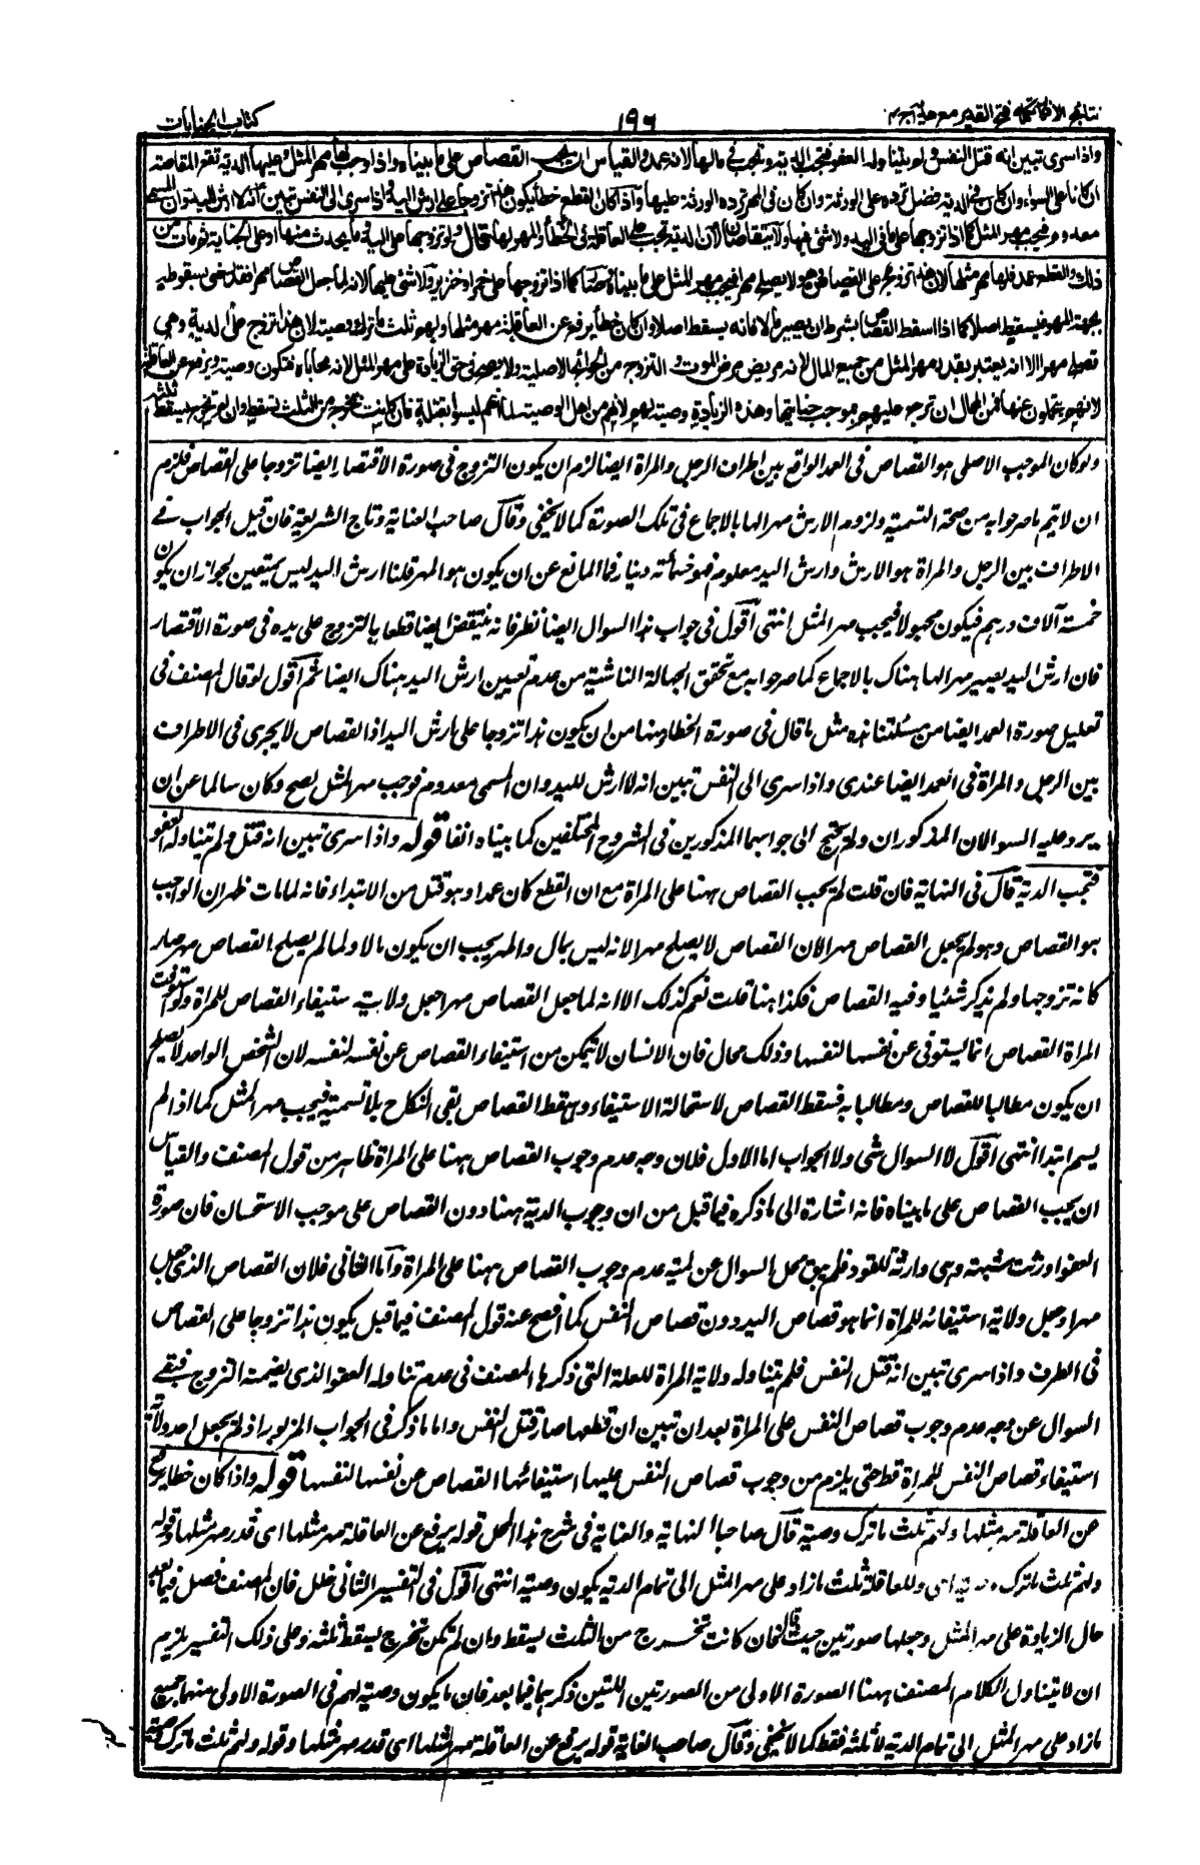 نتائج الافكار تكملة فتح القدير مع هداية ج ٤
١٩٦
كتاب الجنايات
واذا سرى تبين انه قتل النفس ولم يتناوله العفو فتجب الدية وتجب في مالها لانه عمد والقياس ان يجب القصاص على ما بيناه واذا وجب لها مهر المثل وعليها الدية تقع المقاصة
ان كانا على السواء وان كان في الدية فضل ترده على الورثة وان كان في المهر ترده الورثة عليها واذا كان القطع خطأ يكون هذا تزوجا على ارش اليد واذا سرى الى النفس تبين انه لا ارش لليد وان المسمى
معدوم فيجب مهر المثل كما اذا تزوجها على ما في اليد ولا شئ فيها ولا يتقاصان لان الدية تجب على العاقلة في الخطأ والمهر لها قال ولو تزوجها على اليد وما يحدث منها او على الجناية ثم مات من
ذلك والقطع عمد فلها مهر مثلها لان هذا تزوج على القصاص وهو لا يصلح مهرا فيجب مهر المثل على ما بيناه وصار كما اذا تزوجها على خمر او خنزير ولا شئ عليها لانه لما جعل القصاص مهرا فقد رضى بسقوطه
بجهة المهر فيسقط اصلا كما اذا اسقط القصاص بشرط ان يصير مالا فانه يسقط اصلا وان كان خطأ يرفع عن العاقلة مهر مثلها ولهم ثلث ما ترك وصية لان هذا تزوج على الدية وهي
تصلح مهرا الا انه يعتبر بقدر مهر المثل من جميع المال لانه مريض مرض الموت والتزوج من الحوائج الاصلية ولا يصح في حق الزيادة على مهر المثل لانه محاباة فتكون وصية ويرفع عن العاقلة
لانهم يتحملون عنها فمن المحال ان ترجع عليهم بموجب جنايتها وهذه الزيادة وصية لهم لانهم من اهل الوصية لما انهم ليسوا بقتلة فان كانت تخرج من الثلث تسقط وان لم تخرج يسقط ثلثه
ولو كان الموجب الاصلى هو القصاص في العمد الواقع بين اطراف الرجل والمرأة ايضا لزم ان يكون التزوج في صورة الاقتصار ايضا تزوجا على القصاص فلزم
ان لا يتم ما صرحوا به من صحة التسمية ولزوم الارش مهرا لها بالاجماع في تلك الصورة كما لا يخفى وقال صاحب العناية وتاج الشريعة فان قيل الجواب في
الاطراف بين الرجل والمرأة هو الارش وارش اليد معلوم وهو خمسمائة دينار فما المانع عن ان يكون هو المهر قلنا ارش اليد ليس بمتعين لجواز ان يكون
خمسة آلاف درهم فيكون مجهولا فيجب مهر المثل انتهى اقول في جواب هذا السوال ايضا نظر فانه ينتقض ايضا قطعا بالتزوج على يده في صورة الاقتصار
فان ارش اليد يصير مهرا لها هناك بالاجماع كما صرحوا به مع تحقق الجهالة الناشئة من عدم تعيين ارش اليد هناك ايضا ثم اقول لو قال المصنف في
تعليل صورة العمد ايضا من مسئلتنا هذه مثل ما قال في صورة الخطاء منها من ان يكون هذا تزوجا على ارش اليد اذ القصاص لا يجرى في الاطراف
بين الرجل والمرأة في العمد ايضا عندى واذا سرى الى النفس تبين انه لا ارش لليد وان المسمى معدوم فوجب مهر المثل يصح وكان سالما عن ان
يرد عليه السوالان المذكوران ولم يحتج الى جوابهما المذكورين في الشروح المختلفين كما بيناه انفا قوله واذا سرى تبين انه قتل ولم يتناوله العفو
فتجب الدية قال في النهاية فان قلت لم لم يجب القصاص ههنا على المرأة مع ان القطع كان عمدا وهو قتل من الابتداء فانه لما مات ظهر ان الواجب
هو القصاص وهو لم يجعل القصاص مهرا لان القصاص لا يصلح مهرا لانه ليس بمال والمهر يجب ان يكون مالا ولما لم يصلح القصاص مهرا صار
كانه تزوجها ولم يذكر شيئا وفيه القصاص فكذا هنا قلت نعم كذلك الا انه لما جعل القصاص مهرا جعل ولاية ستيفاء القصاص للمرأة ولو استوفت
المرأة القصاص انما يستوفى عن نفسها لنفسها وذلك محال فان الانسان لا يتمكن من استيفاء القصاص عن نفسه لنفسه لان الشخص الواحد لا يصلح
ان يكون مطالبا للقصاص ومطالبا به فسقط القصاص لاستحالة الاستيفاء واذا سقط القصاص بقى النكاح بلا تسمية فيجب مهر المثل كما اذا لم
يسم ابتداء انتهى اقول لا السوال شئ ولا الجواب اما الاول فلان وجه عدم وجوب القصاص ههنا على المرأة ظاهر من قول المصنف والقياس
ان يجب القصاص على ما بيناه فانه اشارة الى ما ذكره فيما قبل من ان وجوب الدية ههنا دون القصاص على موجب الاستحسان فان صورة
العفو اورثت شبهة وهى دارئة للقود فلم يبق محل السوال عن لمية عدم وجوب القصاص ههنا على المرأة واما الثانى فلان القصاص الذى جعل
مهرا وجعل ولاية استيفائه للمرأة انما هو قصاص اليد دون قصاص النفس كما افصح عنه قول المصنف فيما قبل يكون هذا تزوجا على القصاص
فى الطرف واذا سرى تبين انه قتل النفس فلم يتناوله ولاية المرأة للعلة التى ذكرها المصنف فى عدم تناوله العفو الذى يضمنه التزوج فبقى
السوال عن وجه عدم وجوب قصاص النفس على المرأة بعد ان تبين ان قطعها صار قتل النفس واما ما ذكر فى الجواب المزبور اذ لم يجعل احد ولاية
استيفاء قصاص النفس للمرأة قط حتى يلزم من وجوب قصاص النفس عليها استيفائها القصاص عن نفسها لنفسها قوله واذا كان خطا يرفع
عن العاقلة مهر مثلها ولهم ثلث ما ترك وصية قال صاحبا النهاية والعناية فى شرح هذا المحل قوله يرفع عن العاقلة مهر مثلها اى قدر مهر مثلها وقوله
ولهم ثلث ما ترك وصية اى وللعاقلة ثلث ما زاد على مهر المثل الى تمام الدية يكون وصية انتهى اقول فى التفسير الثانى خلل فان المصنف فصل فيما بعد
حال الزيادة على مهر المثل وجعلها صورتين حيث قال فان كانت تخرج من الثلث يسقط وان لم تكن تخرج يسقط ثلثه وعلى ذلك التفسير يلزم
ان لا يتناول الكلام المصنف ههنا الصورة الاولى من الصورتين اللتين ذكرهما فيما بعد فان ما يكون وصية لهم فى الصورة الاولى منهما جميع
ما زاد على مهر المثل الى تمام الدية لا ثلثه فقط كما لا يخفى وقال صاحب الغاية قوله يرفع عن العاقلة مهر مثلها اى قدر مهر مثلها وقوله ولهم ثلث ما ترك وصية